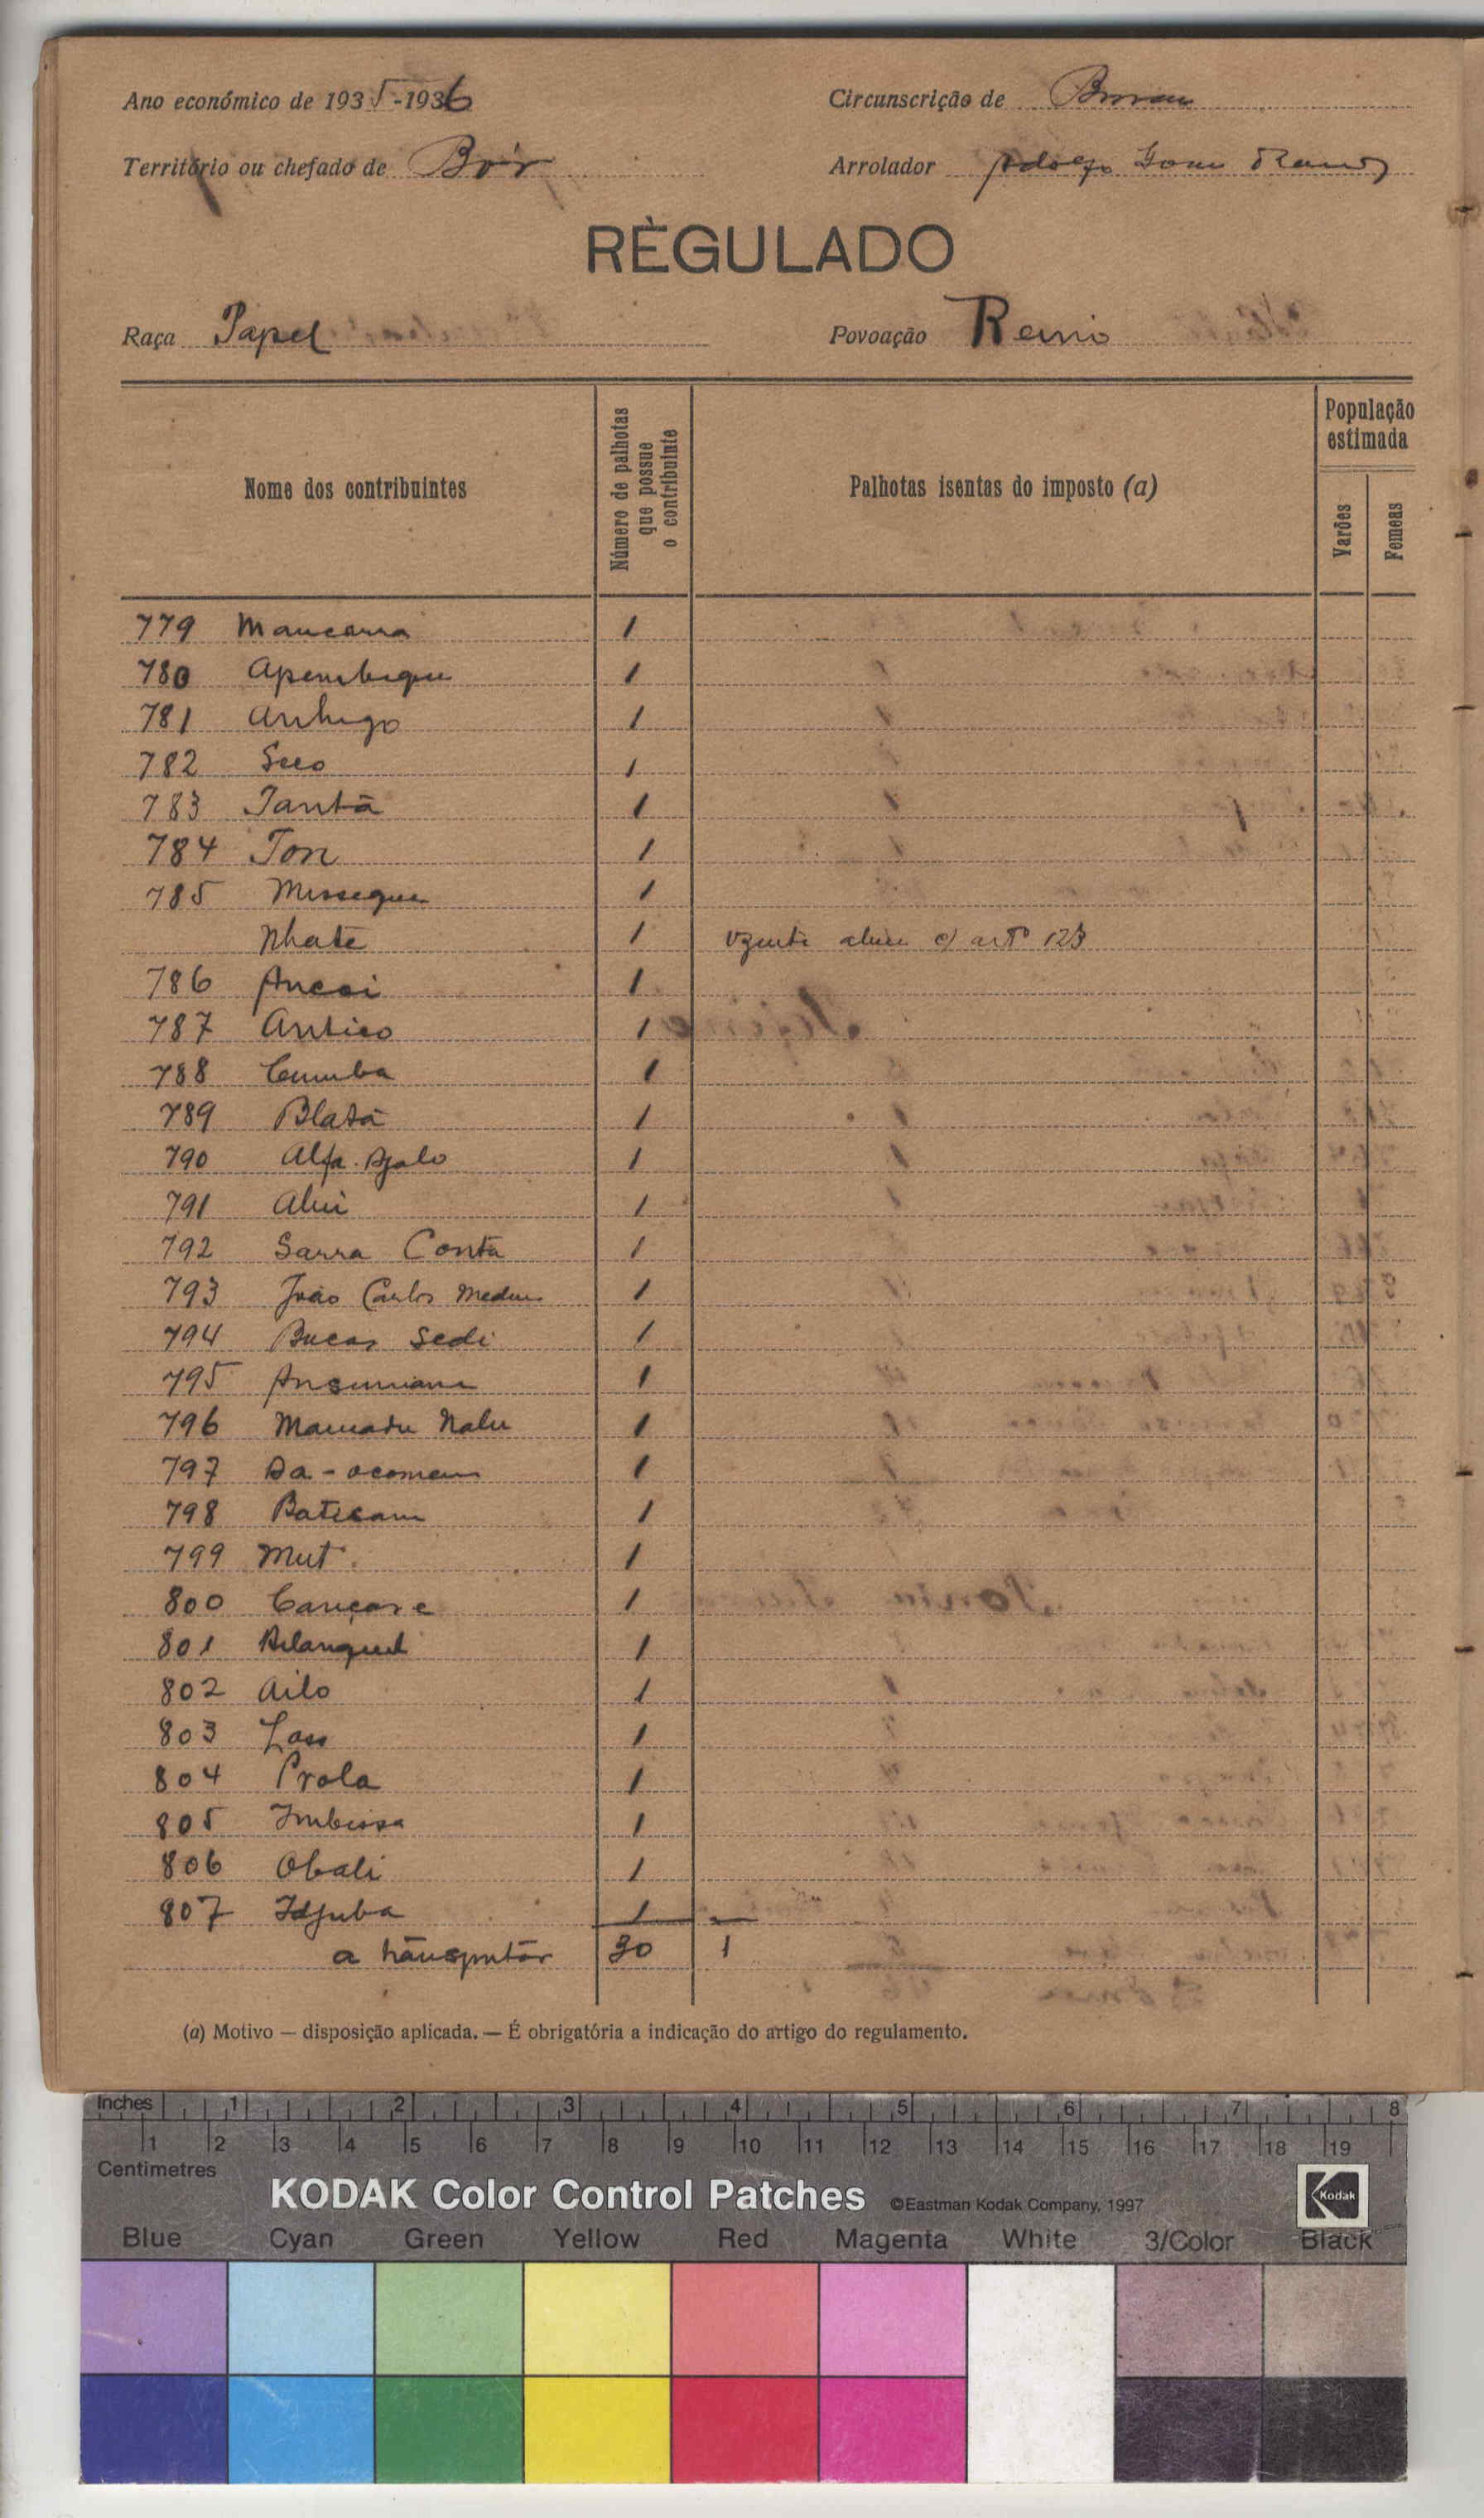 Ano económico de 1935-1936
Circunscrição de
Território ou chefado de Bór
Arrolador Adolfo Gomes Ramos
RÈGULADO
Raça Papel
Povoação Reino
Nome dos contribuintes
Número de palhotas que possue o contribuinte
Palhotas isentas do imposto (a)
População estimada
Varões
Femeas
779 Mancarra 1
780 Apembique 1
781 Anhugo 1
782 Seco 1
783 Tantā 1
784 Ton 1
785 Missegue 1
Nhate 1 c/ artº 123
786 Ancoi 1
787 Antico 1
788 Cumba 1
789 Blatā 1
790 Alfa Djalo 1
791 Alui 1
792 Sarra Conta 1
793 João Carlos 1
794 Sedi 1
795 Ansumane 1
796 Mamadu Nalu 1
797 1
798 Baticam 1
799 Mut 1
800 Cançare 1
801 1
802 Ailo 1
803 1
804 Prola 1
805 Imbissa 1
806 Obali 1
807 Idjuba 1
a transportar 30 1
(a) Motivo — disposição aplicada. — É obrigatória a indicação do artigo do regulamento.
Inches 1 2 3 4 5 6 7 8
1 2 3 4 5 6 7 8 9 10 11 12 13 14 15 16 17 18 19
Centimetres
KODAK Color Control Patches ©Eastman Kodak Company, 1997 Kodak
Blue Cyan Green Yellow Red Magenta White 3/Color Black